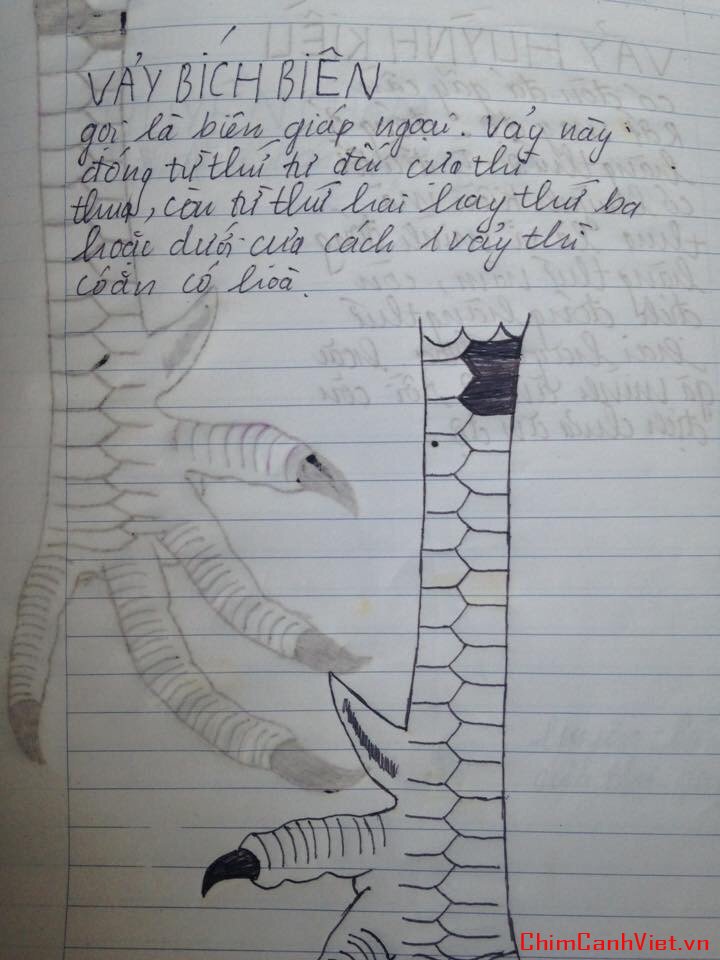 VẢY BÍCH BIÊN
gọi là biên giáp ngoại. Vảy này
đóng từ thứ tư đến cựa thì
thua, còn từ thứ hai hay thứ ba
hoặc dưới cựa cách 1 vảy thì
có ăn có hoà.
ChimCanhViet.vn